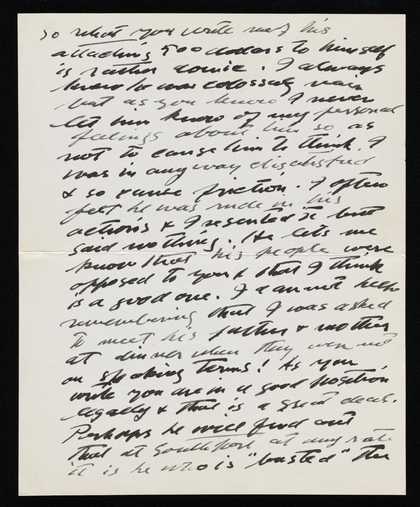 so what you write me of his
attaching 500 dollars to himself
is rather comic. I always
knew he was colossaly vain
but as you know I never
let him know of my personal
feelings about him so as
not to cause him to think I
was in any way dissatisfied
& so cause friction. I often
felt he was rude in his
actions & I resented it but
said nothing. He lets me
know that his people were
opposed to you & that I think
is a good one. I can not help
remembering that I was asked
to meet his father & mother
at dinner when they were not
on speaking terms! As you
write you are in a good position
legally & that is a great deal.
Perhaps he will find out
that at Southport at any rate
it is he who is "busted" the